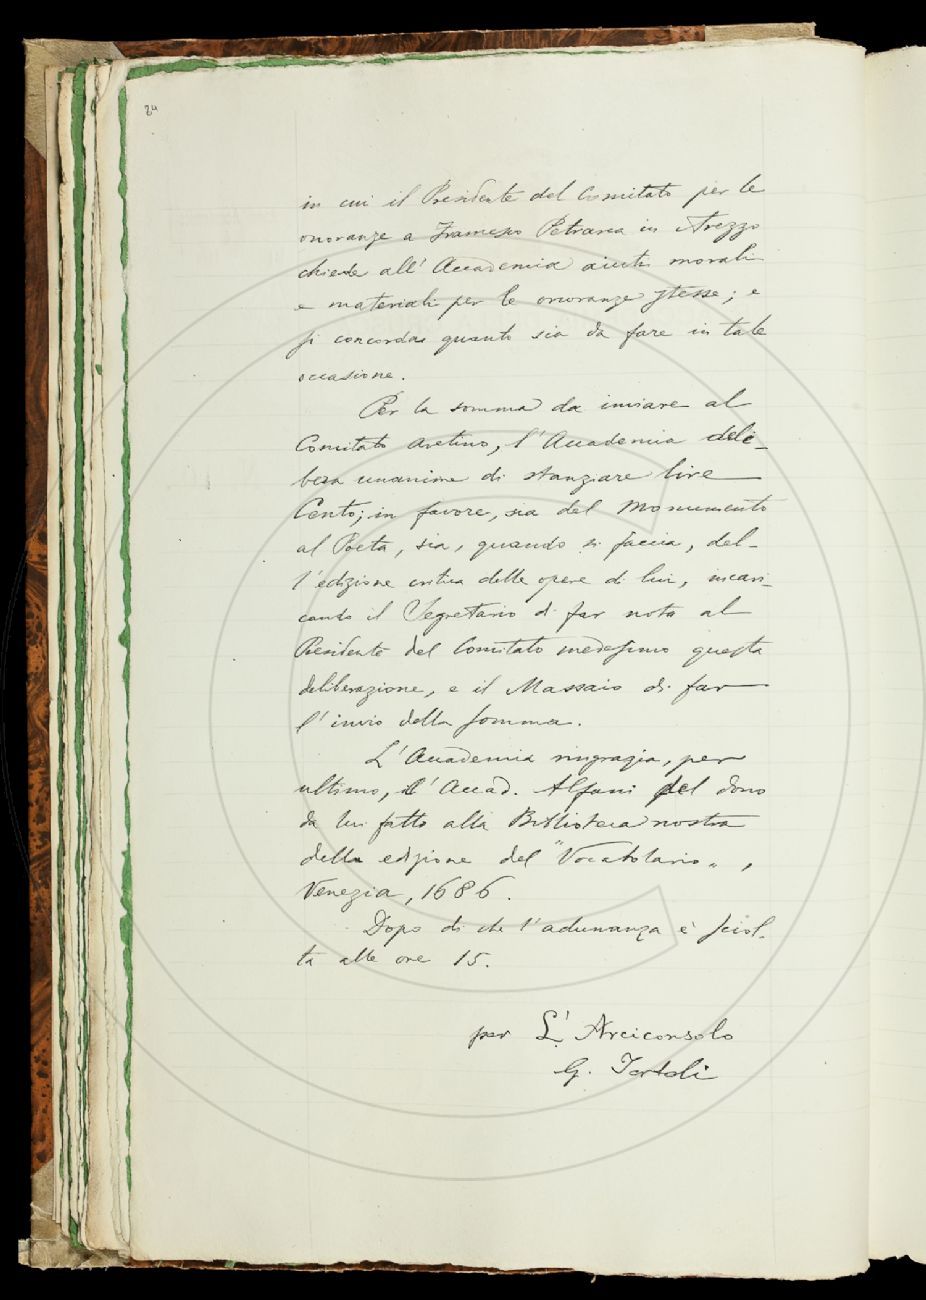 84
in cui il Presidente del Comitato per le
onoranze a Francesco Petrarca in Arezzo
chiede all' Accademia aiuti morali
e materiali per le onoranze stesse; e
si concorda quanto sia da fare in tale
occasione.
Per la somma da inviare al
Comitato aretino, l'Accademia deli-
bera unanime di stanziare lire
Cento; in favore, sia del Monumento
al Poeta, sia, quando si faccia, del-
l'edizione critica delle opere di lui, incari-
cando il Segretario di far nota al
Presidente del Comitato medesimo questa
deliberazione, e il Massaio di far
l'invio della somma.
L'Accademia ringrazia, per
ultimo, l'Accad. Alfani del dono
da lui fatto alla Biblioteca nostra
della edizione del "Vocabolario",,
Venezia, 1686.
Dopo di che l'adunanza è sciol-
ta alle ore 15.
per L'Arciconsolo
G. Tortoli